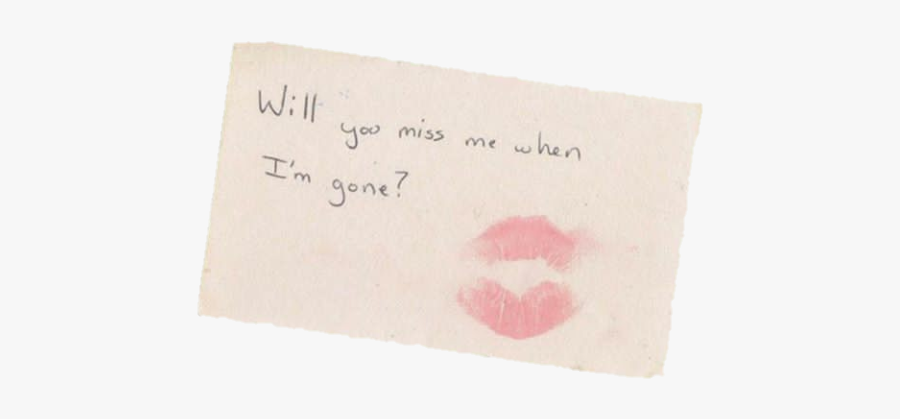 Will you miss me when
I'm gone?